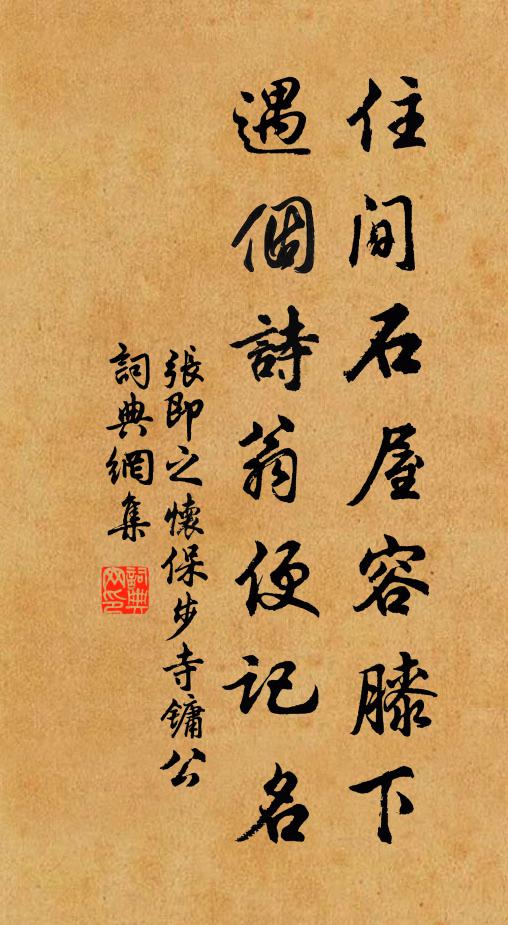 住間石屋容膝下
遇個詩翁便記名
張即之懷保步寺鏞公
詞典網集
詞典网印